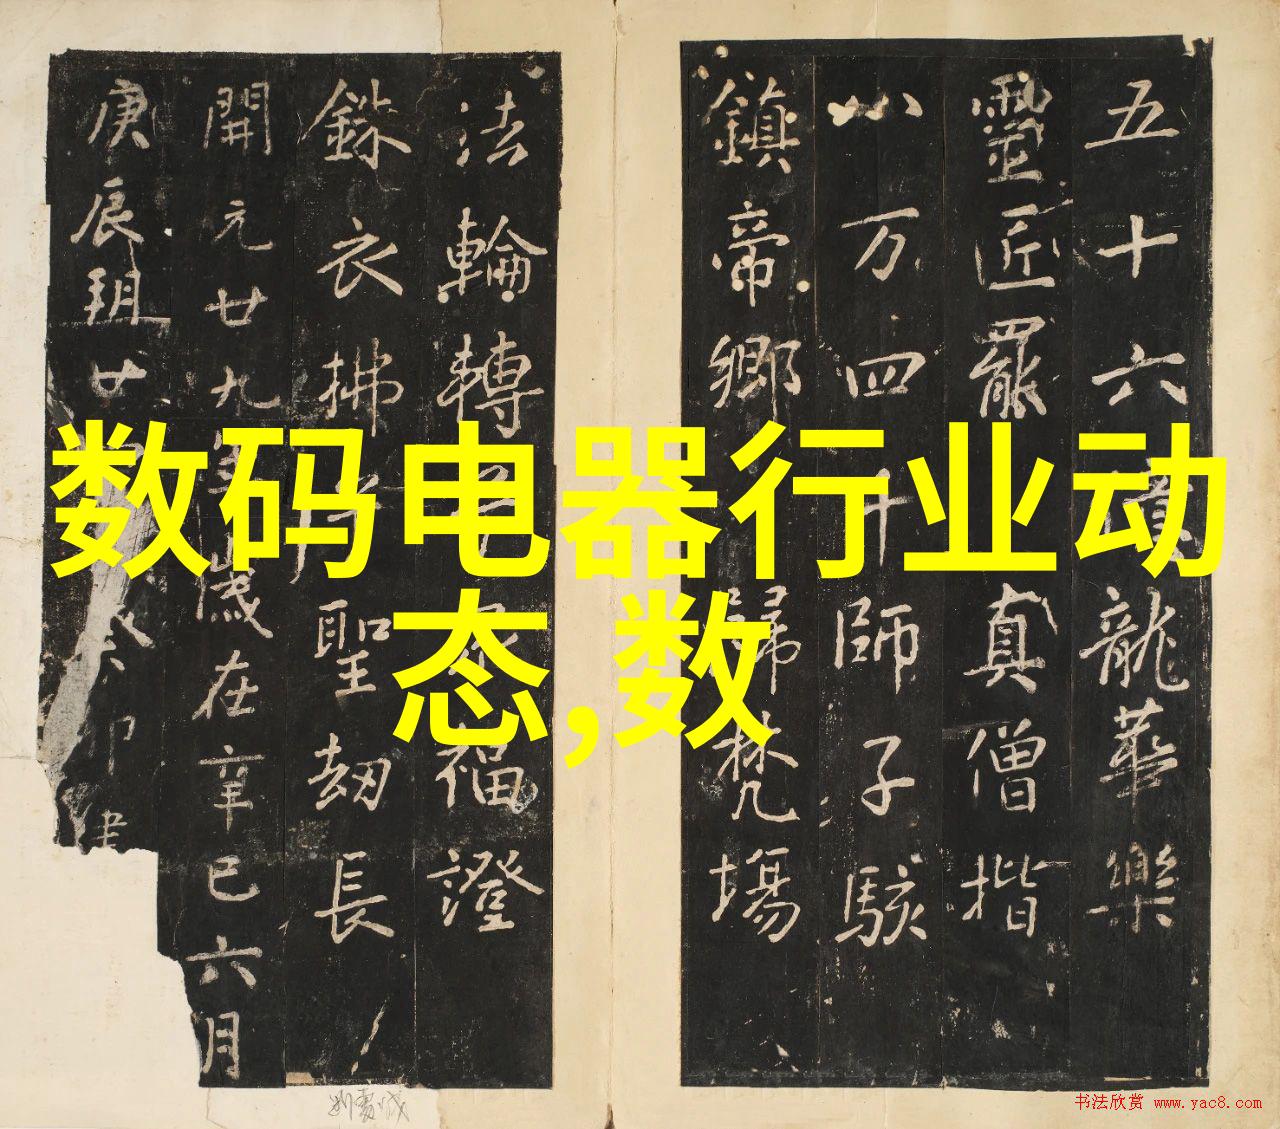 数码电器行业动
态,数
五十六億龍華樂
靈匠罷真僧揩
八万四千師子駭
鎮帝鄉歸梵場
法輪轉福證
銖衣拂聖劫長
開元廿九歲在辛巳六月
庚辰朔廿癸卯建
书法欣赏 www.yac8.com